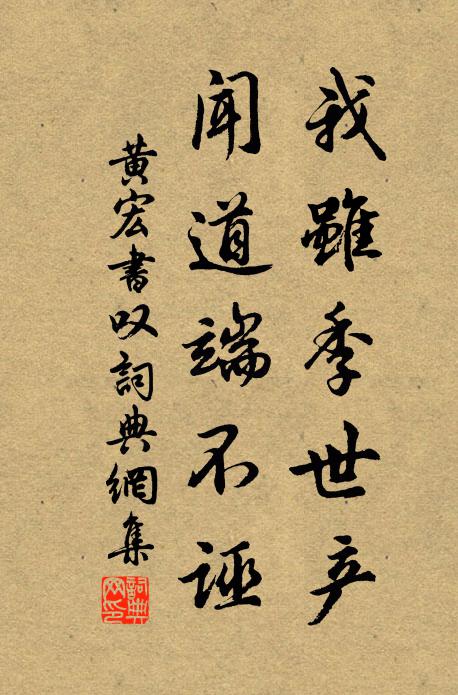 我雖季世产
聞道端不誣
黄宏書叹詞典網集
詞典网印